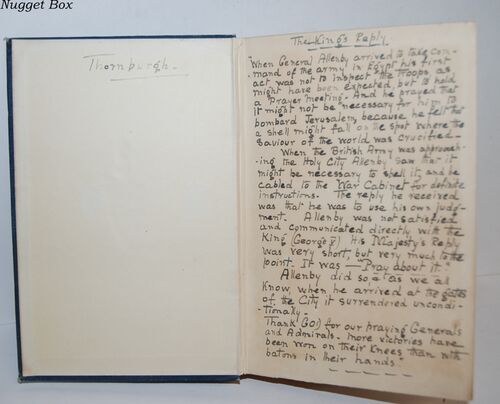 Nugget Box
Thornburgh.
The King's Reply
"When General Allenby arrived to take com-
mand of the army in Egypt his first
act was not to inspect the troops as
might have been expected, but to hold
a prayer meeting. And he prayed that
it might not be necessary for him to
bombard Jerusalem, because he felt that
a shell might fall on the spot where the
Saviour of the world was crucified.
When the British Army was approach-
-ing the Holy City Allenby saw that it
might be necessary to shell it, and he
cabled to the War Cabinet for definite
instructions. The reply he received
was that he was to use his own judg-
ment. Allenby was not satisfied
and communicated directly with the
King (George V) his Majesty's Reply
was very short, but very much to the
point. It was — "Pray about it."
Allenby did so & as we all
know, when he arrived at the gates
of the City it surrendered uncondi-
-tionally -
Thank GOD for our praying Generals
and Admirals. More victories have
been won on their knees than with
batons in their hands."